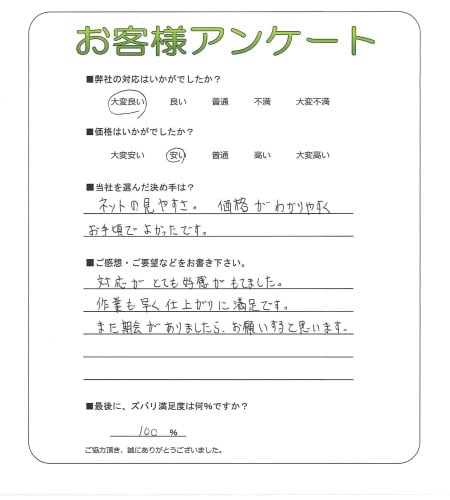 お客様アンケート
■弊社の対応はいかがでしたか？
大変良い 良い 普通 不満 大変不満
■価格はいかがでしたか？
大変安い 安い 普通 高い 大変高い
■当社を選んだ決め手は？
ネットの見やすさ。 価格がわかりやすく
お手頃でよかったです。
■ご感想・ご要望などをお書き下さい。
対応がとても好感がもてました。
作業も早く仕上がりに満足です。
また機会がありましたら、お願いすると思います。
■最後に、ズバリ満足度は何%ですか？
100 %
ご協力頂き、誠にありがとうございました。